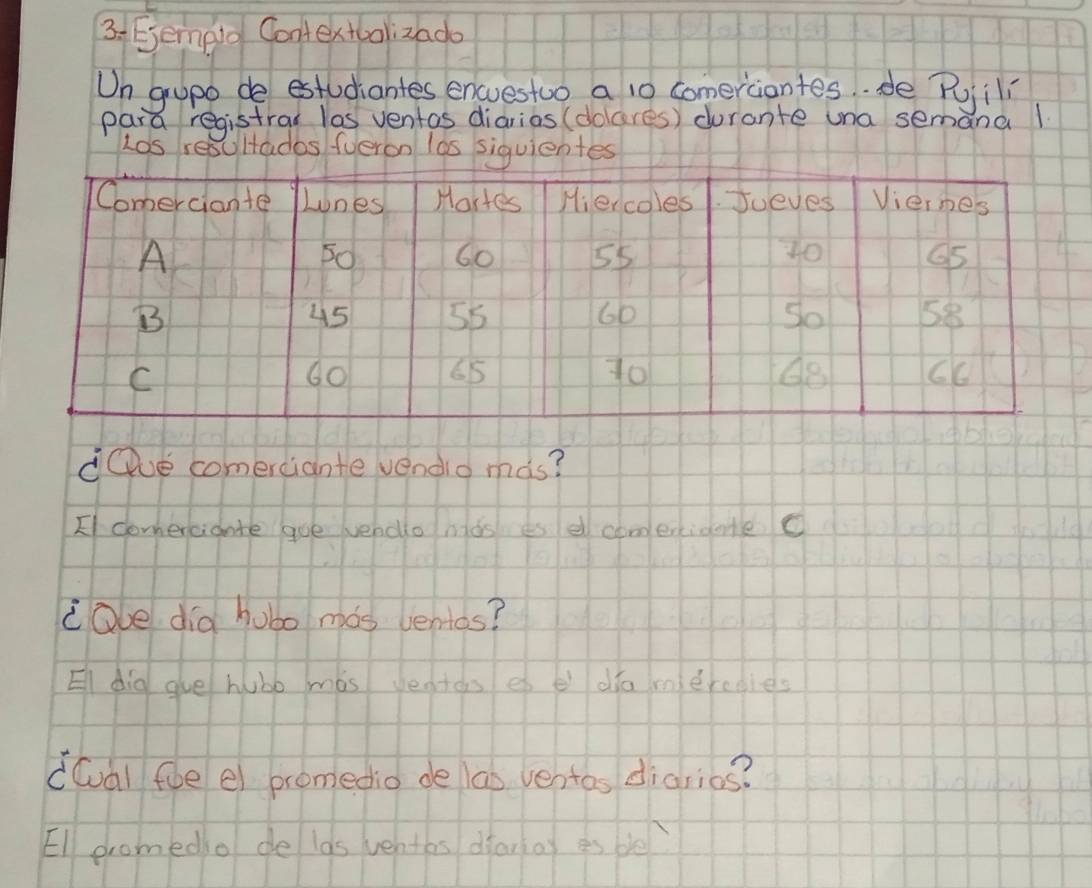 3.- Ejemplo Contextualizado
Un grupo de estudiantes encuestuo a 10 comerciantes.. de Pujilí
para registrar las ventas diarias (dolares) durante una semana 1.
Los resultados fueron los siguientes
Comerciante Lunes Martes Miercoles Jueves Viernes
A 50 60 55 70 65
B 45 55 60 50 58
C 60 65 70 68 66
¿Qué comerciante vendio más?
El comerciante que vendio más es el comerciante C
¿Que día hubo más ventas?
El día que hubo más ventas es el día miércoles
¿Cual fue el promedio de las ventas diarias?
El promedio de las ventas diarias es de